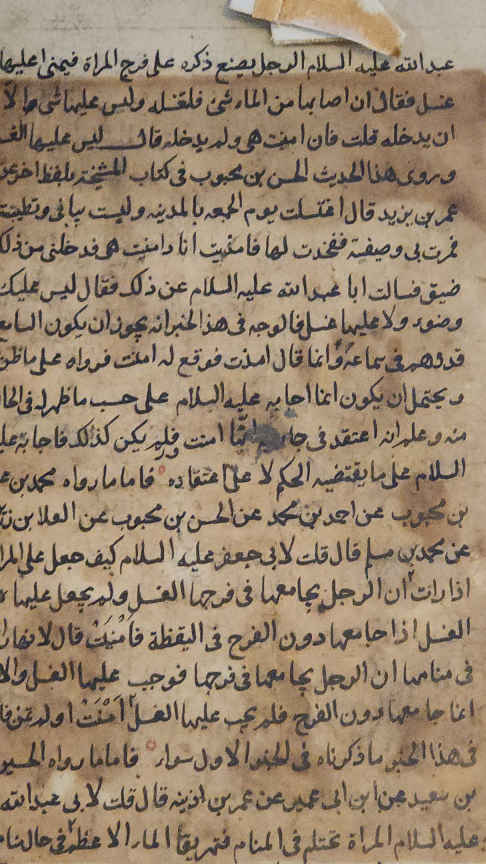 عبد الله عليه السلام الرجل يضع ذكره على فرج المراة فيمنى اعليها
غسل فقال ان اصابها من الماء شئ فلتغسله وليس عليها شئ الا
ان يدخله قلت فان امنت هى ولم يدخله قال ليس عليها الغسل
وروى هذا الحديث الحسن بن محبوب فى كتاب المشيخة بلفظ اخر عن
عمر بن يزيد قال اغتسلت يوم الجمعه بالمدينه ولبست ثيابى وتطيبت
فمرت بى وصيفة ففخذت لها فامذيت انا وامنت هى فدخلنى من ذلك
ضيق فسالت ابا عبد الله عليه السلام عن ذلك فقال ليس عليك
وضوء ولا عليها غسل فالوجه فى هذا الخبر انه يجوز ان يكون السامع
قد وهم فى سماعه وانما قال امذت فوقع له امنت فرواه على ما ظن
ويحتمل ان يكون انما اجابه عليه السلام على حسب ما ظهر له فى الحال
منه وعلم انه اعتقد فى انها امنت ولم يكن كذلك فاجابه عليه
السلام على ما يقتضيه الحكم لا على اعتقاده فاما ما رواه محمد بن على
بن محبوب عن احمد بن محمد عن الحسن بن محبوب عن العلا بن رزين
عن محمد بن مسلم قال قلت لابى جعفر عليه السلام كيف جعل على المراة
اذا رات ان الرجل يجامعها فى فرجها الغسل ولم يجعل عليها
الغسل اذا جامعها دون الفرج فى اليقظة فامنت قال لانها رات
فى منامها ان الرجل يجامعها فى فرجها فوجب عليها الغسل والاخر
انما جامعها دون الفرج فلم يجب عليها الغسل امنت او لم تمن فالوجه
فى هذا الخبر ما ذكرناه فى الخبر الاول سواء فاما ما رواه الحسين
بن سعيد عن ابن ابى عمير عن عمر بن اذينه قال قلت لابى عبد الله
عليه السلام المراة تحتلم فى المنام فتهريق الماء الاعظم فى حال